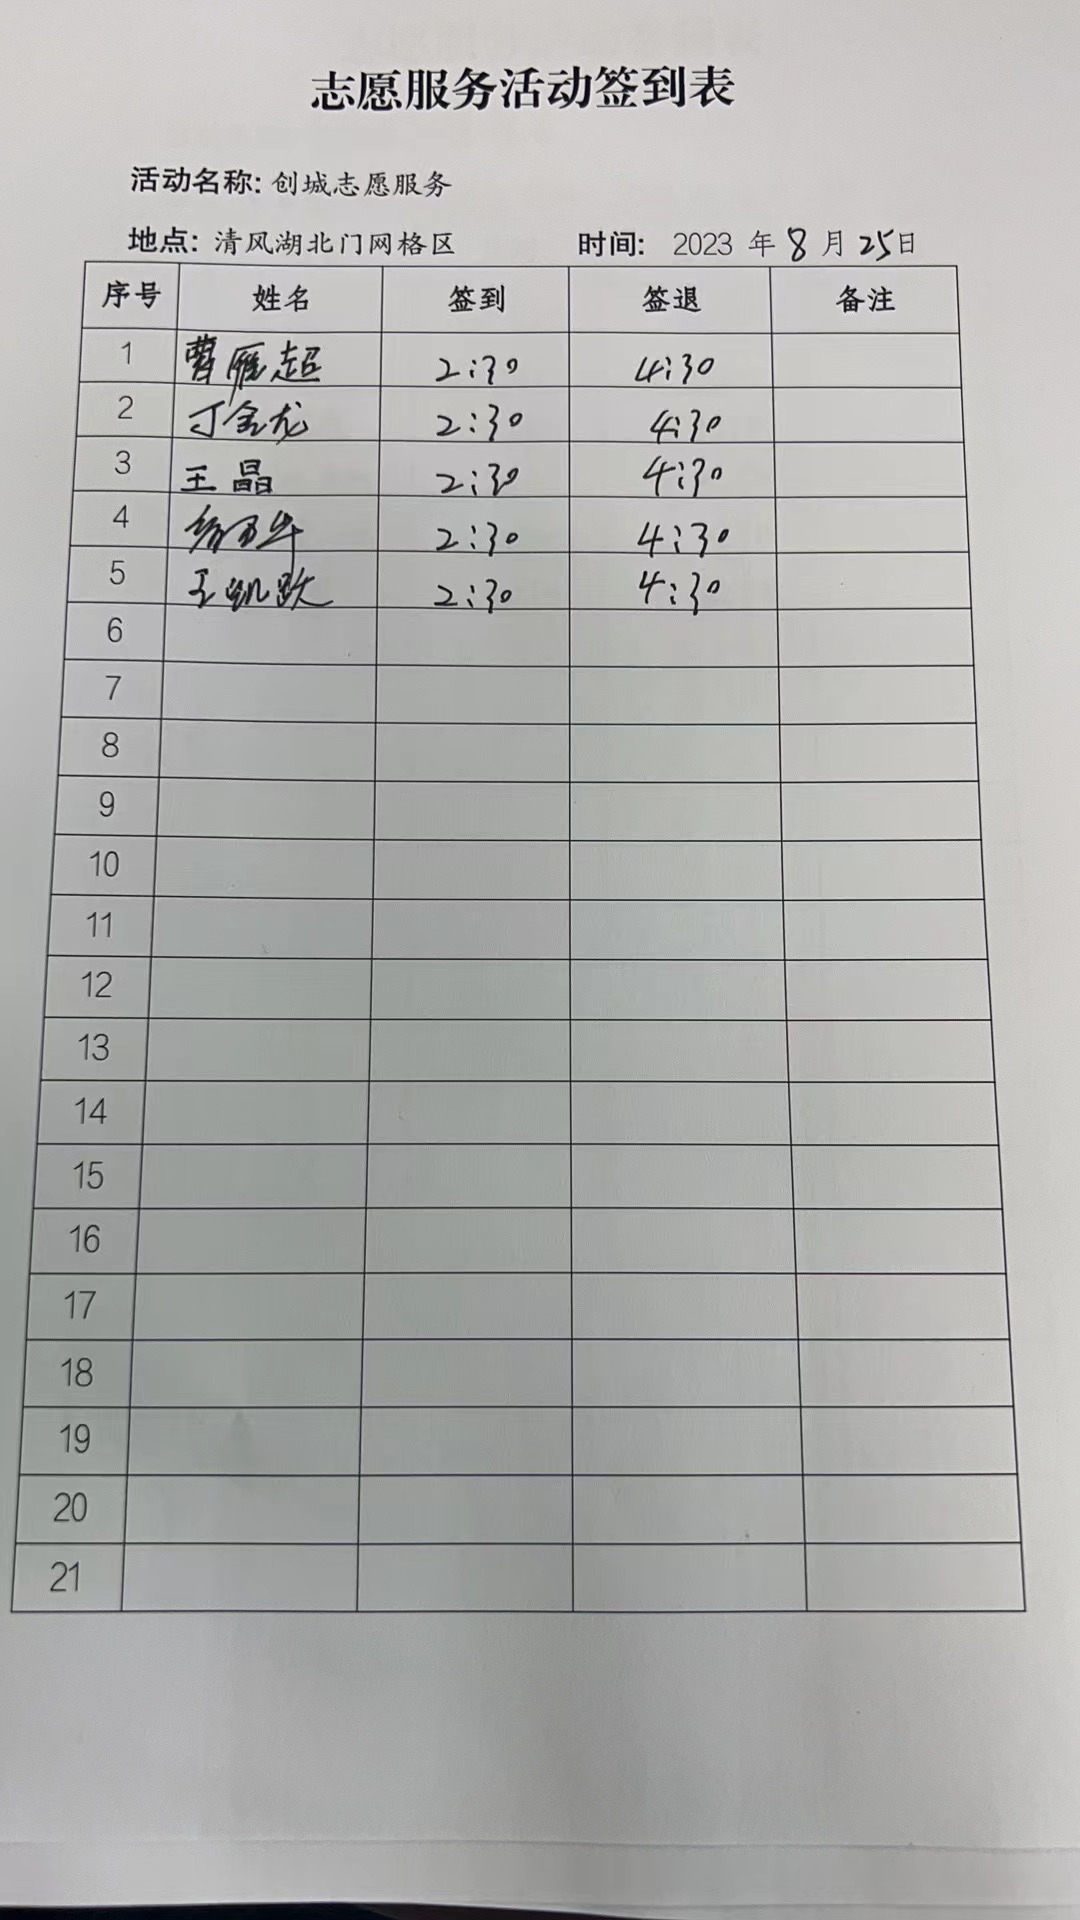 志愿服务活动签到表
活动名称: 创城志愿服务
地点: 清风湖北门网格区 时间: 2023 年 8 月 25日
序号 姓名 签到 签退 备注
1 曹雁超 2:30 4:30
2 丁金龙 2:30 4:30
3 王晶 2:30 4:30
4 2:30 4:30
5 王凯跃 2:30 4:30
6
7
8
9
10
11
12
13
14
15
16
17
18
19
20
21